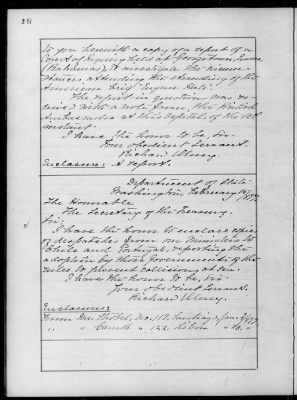 18
to you herewith a copy of a report of a
Court of Inquiry held at George Town, Exuma
(Bahamas), to investigate the circum-
stances attending the stranding of the
American brig
The report in question was re-
ceived with a note from the British
Ambassador at this Capital, of the 12th
instant.
I have the honor to be, Sir,
Your obedient servant,
Richard Olney.
Enclosure: A report.
Department of State
Washington, February 15, 1897
The Honorable
The Secretary of the Treasury.
Sir:
I have the honor to enclose copies
of despatches from our Ministers to
Chile and Portugal, reporting the
adoption by those Governments of the
rules to prevent collisions at sea.
I have the honor to be, Sir,
Your obedient servant,
Richard Olney.
Enclosures:
From Mr. Strobel, No. 118, Santiago, Jan. 1897
" " Caruth " 122, Lisbon "